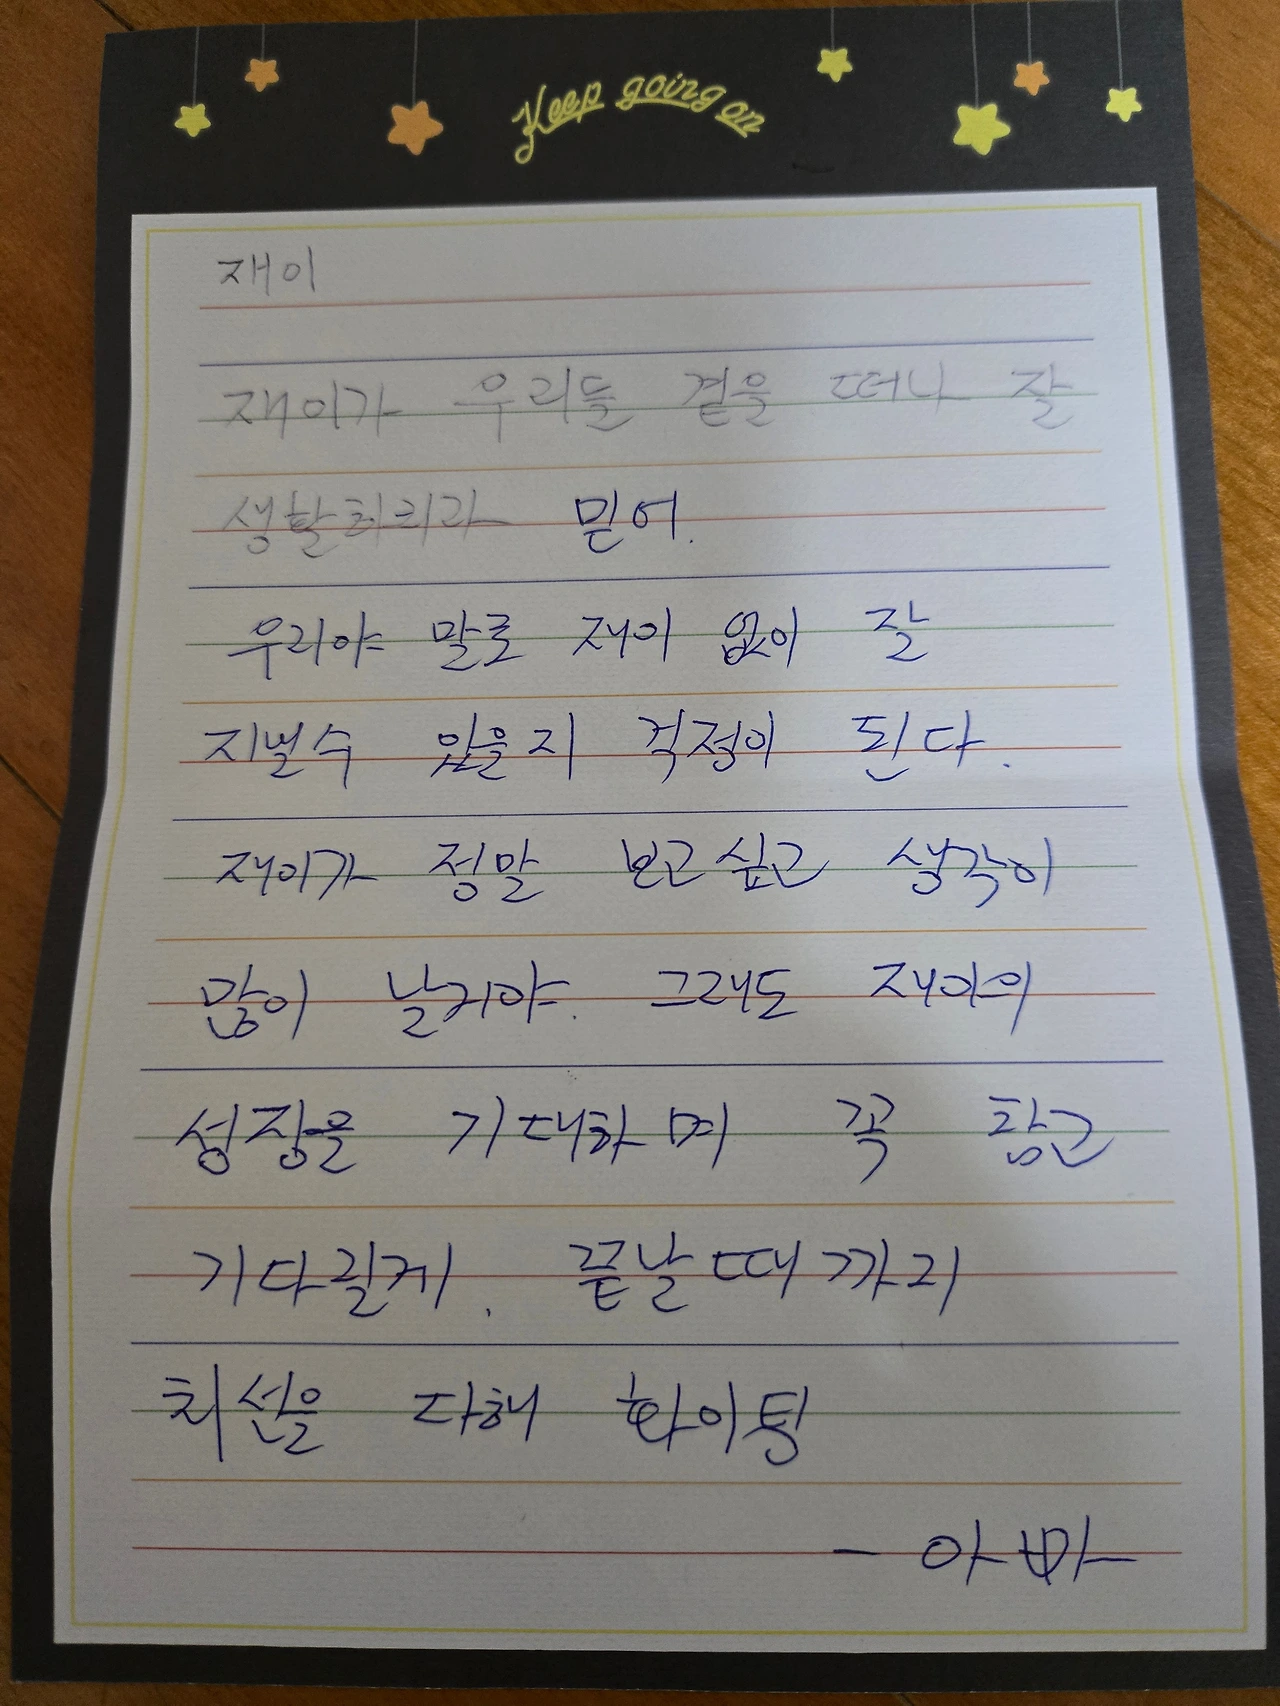 Keep going on
재이
재이가 우리들 곁을 떠나 잘
생활하리라 믿어.
우리야 말로 재이 없이 잘
지낼수 있을지 걱정이 된다.
재이가 정말 보고싶고 생각이
많이 날거야. 그래도 재이의
성장을 기대하며 꼭 참고
기다릴게. 끝날때까지
최선을 다해 화이팅
- 아빠